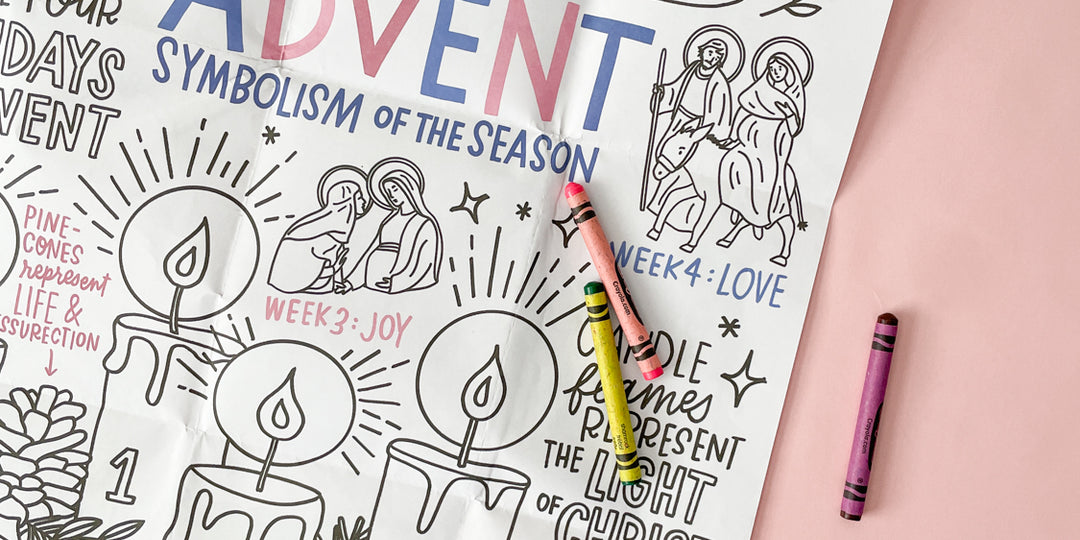 YOUR
DAYS
ADVENT
SYMBOLISM OF THE SEASON
PINE-
CONES
represent
LIFE &
WEEK 3: JOY
WEEK 4: LOVE
CANDLE
flames
REPRESENT
THE LIGHT
OF CHRIST
1
Crayola.com
Crayola.com